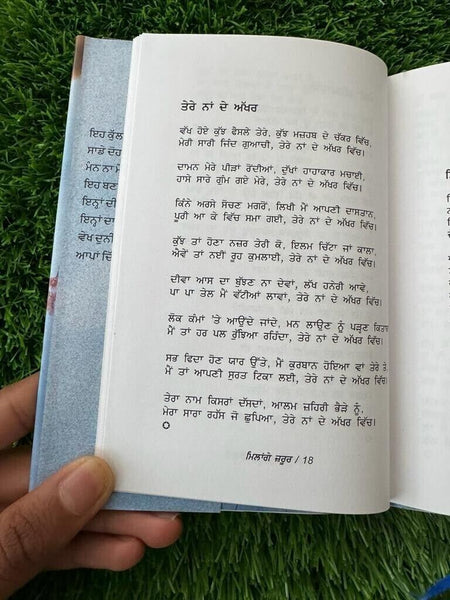 ਇਹ ਕੁੱਲ
ਸਾਡੇ ਦੋਹ
ਮੰਨ ਨਾ ਮੰ
ਇਹ ਬਣ
ਇਨ੍ਹਾਂ ਦੀ
ਇਨ੍ਹਾਂ ਦਾ
ਵੇਖ ਦੁਨੀ
ਆਪਾਂ ਚਿੰ
ਤੇਰੇ ਨਾਂ ਦੇ ਅੱਖਰ
ਵੱਖ ਹੋਏ ਕੁੱਝ ਫੈਸਲੇ ਤੇਰੇ, ਕੁੱਝ ਮਜ਼ਹਬ ਦੇ ਚੱਕਰ ਵਿੱਚ,
ਮੇਰੀ ਸਾਰੀ ਜਿੰਦ ਗੁਆਚੀ, ਤੇਰੇ ਨਾਂ ਦੇ ਅੱਖਰ ਵਿੱਚ।
ਦਾਮਨ ਮੇਰੇ ਪੀੜਾਂ ਰੋਂਦੀਆਂ, ਦੁੱਖਾਂ ਹਾਹਾਕਾਰ ਮਚਾਈ,
ਹਾਸੇ ਸਾਰੇ ਗੁੰਮ ਗਏ ਮੇਰੇ, ਤੇਰੇ ਨਾਂ ਦੇ ਅੱਖਰ ਵਿੱਚ।
ਕਿੰਨੇ ਅਰਸੇ ਸੋਚਣ ਮਗਰੋਂ, ਲਿਖੀ ਮੈਂ ਆਪਣੀ ਦਾਸਤਾਨ,
ਪੂਰੀ ਆ ਕੇ ਵਿੱਚ ਸਮਾ ਗਈ, ਤੇਰੇ ਨਾਂ ਦੇ ਅੱਖਰ ਵਿੱਚ।
ਕੁੱਝ ਤਾਂ ਹੋਣਾ ਨਜ਼ਰ ਤੇਰੀ ਕੋ, ਇਲਮ ਚਿੱਟਾ ਜਾਂ ਕਾਲਾ,
ਐਵੇਂ ਤਾਂ ਨਈਂ ਰੂਹ ਕੁਮਲਾਈ, ਤੇਰੇ ਨਾਂ ਦੇ ਅੱਖਰ ਵਿੱਚ।
ਦੀਵਾ ਆਸ ਦਾ ਬੁੱਝਣ ਨਾ ਦੇਵਾਂ, ਲੱਖ ਹਨੇਰੀ ਆਵੇ,
ਪਾ ਪਾ ਤੇਲ ਮੈਂ ਵੱਟੀਆਂ ਲਾਵਾਂ, ਤੇਰੇ ਨਾਂ ਦੇ ਅੱਖਰ ਵਿੱਚ।
ਲੋਕ ਕੰਮਾਂ 'ਤੇ ਆਉਂਦੇ ਜਾਂਦੇ, ਮਨ ਲਾਉਣ ਨੂੰ ਪੜ੍ਹਣ ਕਿਤਾਬ
ਮੈਂ ਤਾਂ ਹਰ ਪਲ ਰੁੱਝਿਆ ਰਹਿੰਦਾ, ਤੇਰੇ ਨਾਂ ਦੇ ਅੱਖਰ ਵਿੱਚ।
ਸਭ ਫਿਦਾ ਹੋਣ ਯਾਰ ਉੱਤੇ, ਮੈਂ ਕੁਰਬਾਨ ਹੋਇਆ ਵਾਂ ਤੇਰੇ ਤੇ,
ਮੈਂ ਤਾਂ ਆਪਣੀ ਸੁਰਤ ਟਿਕਾ ਲਈ, ਤੇਰੇ ਨਾਂ ਦੇ ਅੱਖਰ ਵਿੱਚ।
ਤੇਰਾ ਨਾਮ ਕਿਸਰਾਂ ਦੱਸਦਾਂ, ਆਲਮ ਜ਼ਹਿਰੀ ਭੈੜੇ ਨੂੰ,
ਮੇਰਾ ਸਾਰਾ ਰਹੱਸ ਜੋ ਛੁਪਿਆ, ਤੇਰੇ ਨਾਂ ਦੇ ਅੱਖਰ ਵਿੱਚ।
ਮਿਲਾਂਗੇ ਜ਼ਰੂਰ / 18